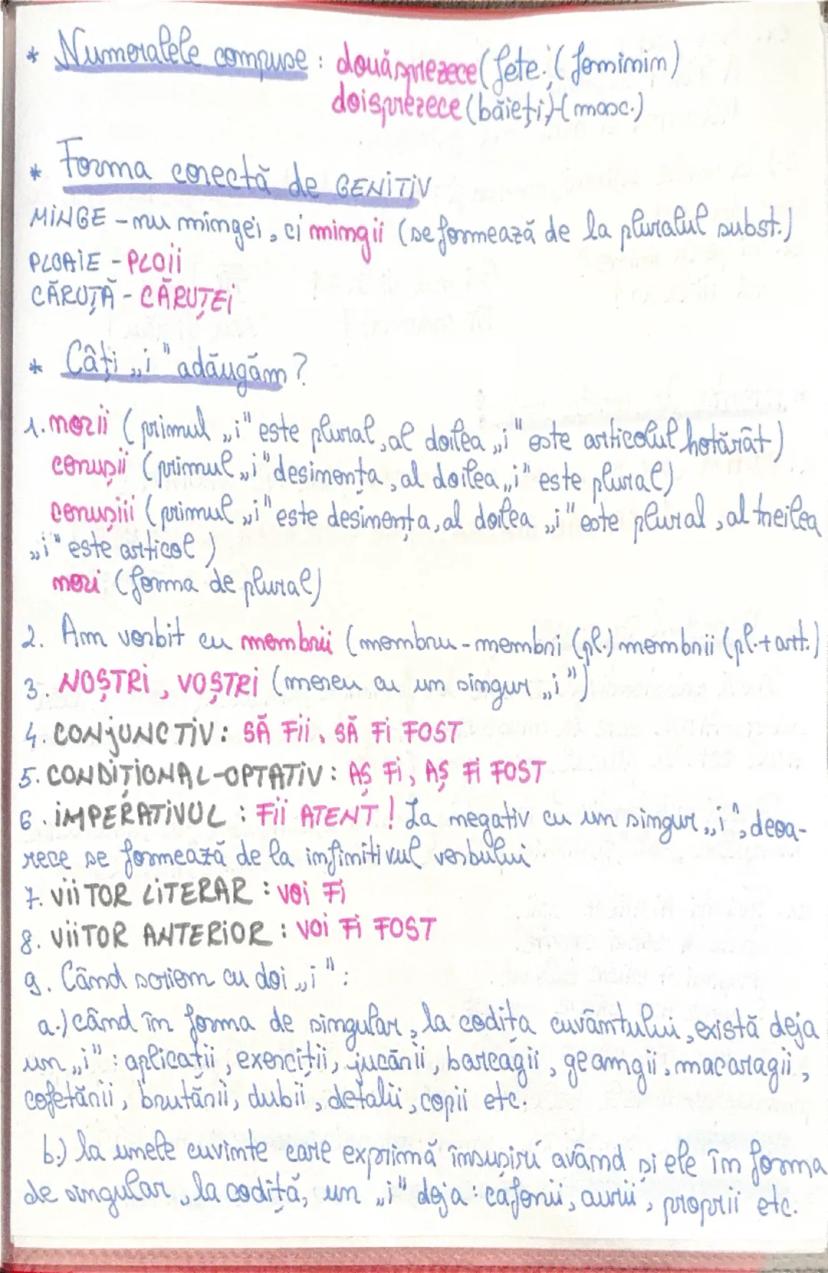 * Numeralele compuse : douăsprezece (fete) (feminim)
doisprezece (băieți) - (masc.)
* Forma corectă de GENITIV
MINGE - nu mingei, ci mingii (se formează de la pluralul subst.)
PLOAIE - PLOII
CĂRUȚĂ - CĂRUȚEI
* Câți „i" adăugăm ?
1. mezii (primul „i" este plural, al doilea „i" este articolul hotărât)
cenușii (primul „i" desinența, al doilea „i" este plural)
cenușiii (primul „i" este desinența, al doilea „i" este plural, al treilea
„i" este articol)
mezi (forma de plural)
2. Am vorbit cu membrii (membru - membri (pl.) membrii (pl. + art.)
3. NOȘTRI, VOȘTRI (mereu cu un singur „i")
4. CONJUNCTIV : SĂ FII, SĂ FI FOST
5. CONDIȚIONAL-OPTATIV : AȘ FI, AȘ FI FOST
6. IMPERATIVUL : FII ATENT ! La negativ cu un singur „i", deoa-
rece se formează de la infinitivul verbului
7. VIITOR LITERAR : VOI FI
8. VIITOR ANTERIOR : VOI FI FOST
9. Când scriem cu doi „i" :
a.) când în forma de singular, la codița cuvântului, există deja
un „i" : aplicații, exerciții, jucării, barcagii, geamgii, macaragii,
cofetării, brutării, dubii, detalii, copii etc.
b.) la unele cuvinte care exprimă însușiri având și ele în forma
de singular, la codiță, un „i" deja cafenii, aurii, proprii etc.